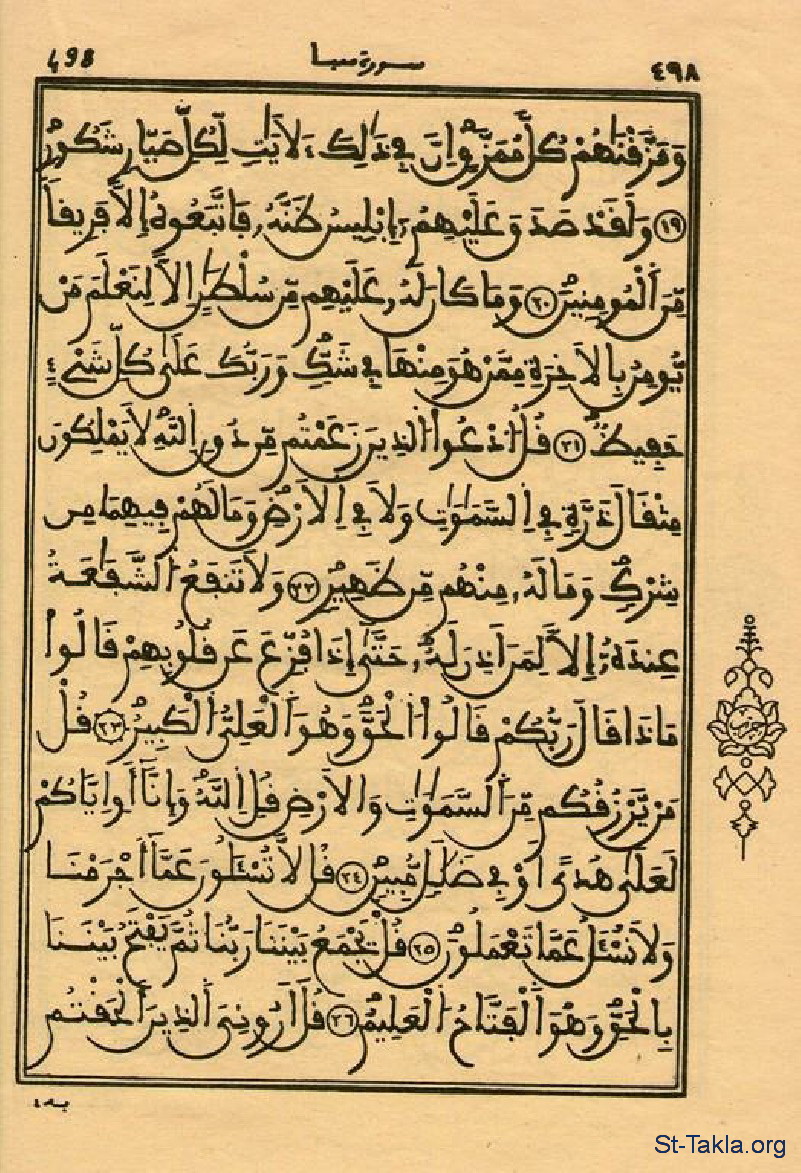 498 سورة سبا ٤٩٨
وَمَزَّقْنَٰهُمْ كُلَّ مُمَزَّقٍ اِنَّ فِے ذَٰلِكَ ءَلَايَٰتٖ لِّكُلِّ صَبّ۪ارٖ شَكُورٖ
(١٩) وَلَقَدْ صَدَقَ عَلَيْهِمُۥٓ إِبْلِيسُ ظَنَّهُۥ فَاتَّبَعُوهُ إِلَّا فَرِيقاٗ
مِّنَ اَ۬لْمُومِنِينَ (٢٠) وَمَا كَانَ لَهُۥ عَلَيْهِم مِّن سُلْطَٰنٍ اِلَّا لِنَعْلَمَ مَنْ
يُّومِنُ بِالَاخِرَةِ مِمَّنْ هُوَ مِنْهَا فِے شَكّٖ وَرَبُّكَ عَلَىٰ كُلِّ شَےْءٍ
حَفِيظٞ (٢١) قُلُ اُ۟دْعُواْ اُ۬لذِينَ زَعَمْتُم مِّن دُونِ اِ۬للَّهِ لَا يَمْلِكُونَ
مِثْقَالَ ذَرَّةٖ فِے اِ۬لسَّمَٰوَٰتِ وَلَا فِے اِ۬لَارْضِ وَمَا لَهُمْ فِيهِمَا مِن
شِرْكٖ وَمَا لَهُۥ مِنْهُم مِّن ظَهِيرٖ (٢٢) وَلَا تَنفَعُ اُ۬لشَّفَٰعَةُ
عِندَهُۥٓ إِلَّا لِمَنَ اَذِنَ لَهُۥ حَتَّىٰٓ إِذَا فُزِّعَ عَن قُلُوبِهِمْ قَالُواْ
مَاذَا قَالَ رَبُّكُمْ قَالُواْ اُ۬لْحَقَّ وَهُوَ اَ۬لْعَلِيُّ اُ۬لْكَبِيرُ (٢٣) قُلْ
مَنْ يَّرْزُقُكُم مِّنَ اَ۬لسَّمَٰوَٰتِ وَالَارْضِ قُلِ اِ۬للَّهُ وَإِنَّآ أَوِ اِيَّاكُمْ
لَعَلَىٰ هُدًى اَوْ فِے ضَلَٰلٖ مُّبِينٖ (٢٤) قُل لَّا تُسْـَٔلُونَ عَمَّآ أَجْرَمْنَا
وَلَا نُسْـَٔلُ عَمَّا تَعْمَلُونَ (٢٥) قُلْ يَجْمَعُ بَيْنَنَا رَبُّنَا ثُمَّ يَفْتَحُ بَيْنَنَا
بِالْحَقِّ وَهُوَ اَ۬لْفَتَّاحُ اُ۬لْعَلِيمُ (٢٦) قُلَ اَرُونِيَ اَ۬لذِينَ أَلْحَقْتُم
به
St-Takla.org